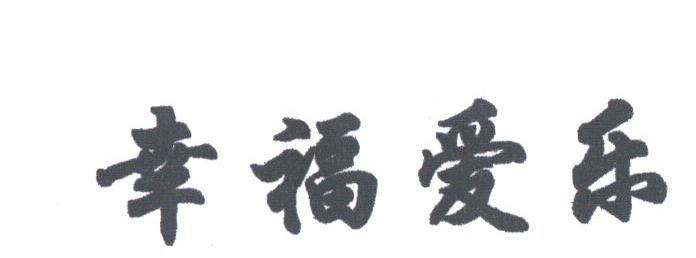 幸福爱乐